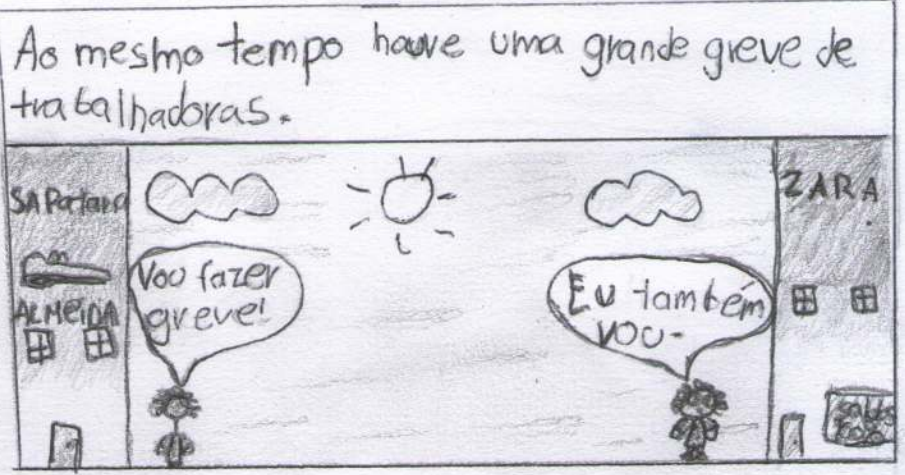 Ao mesmo tempo houve uma grande greve de
trabalhadoras.
SAPataria
ALMEIDA
Vou fazer
greve!
Eu também
vou.
ZARA